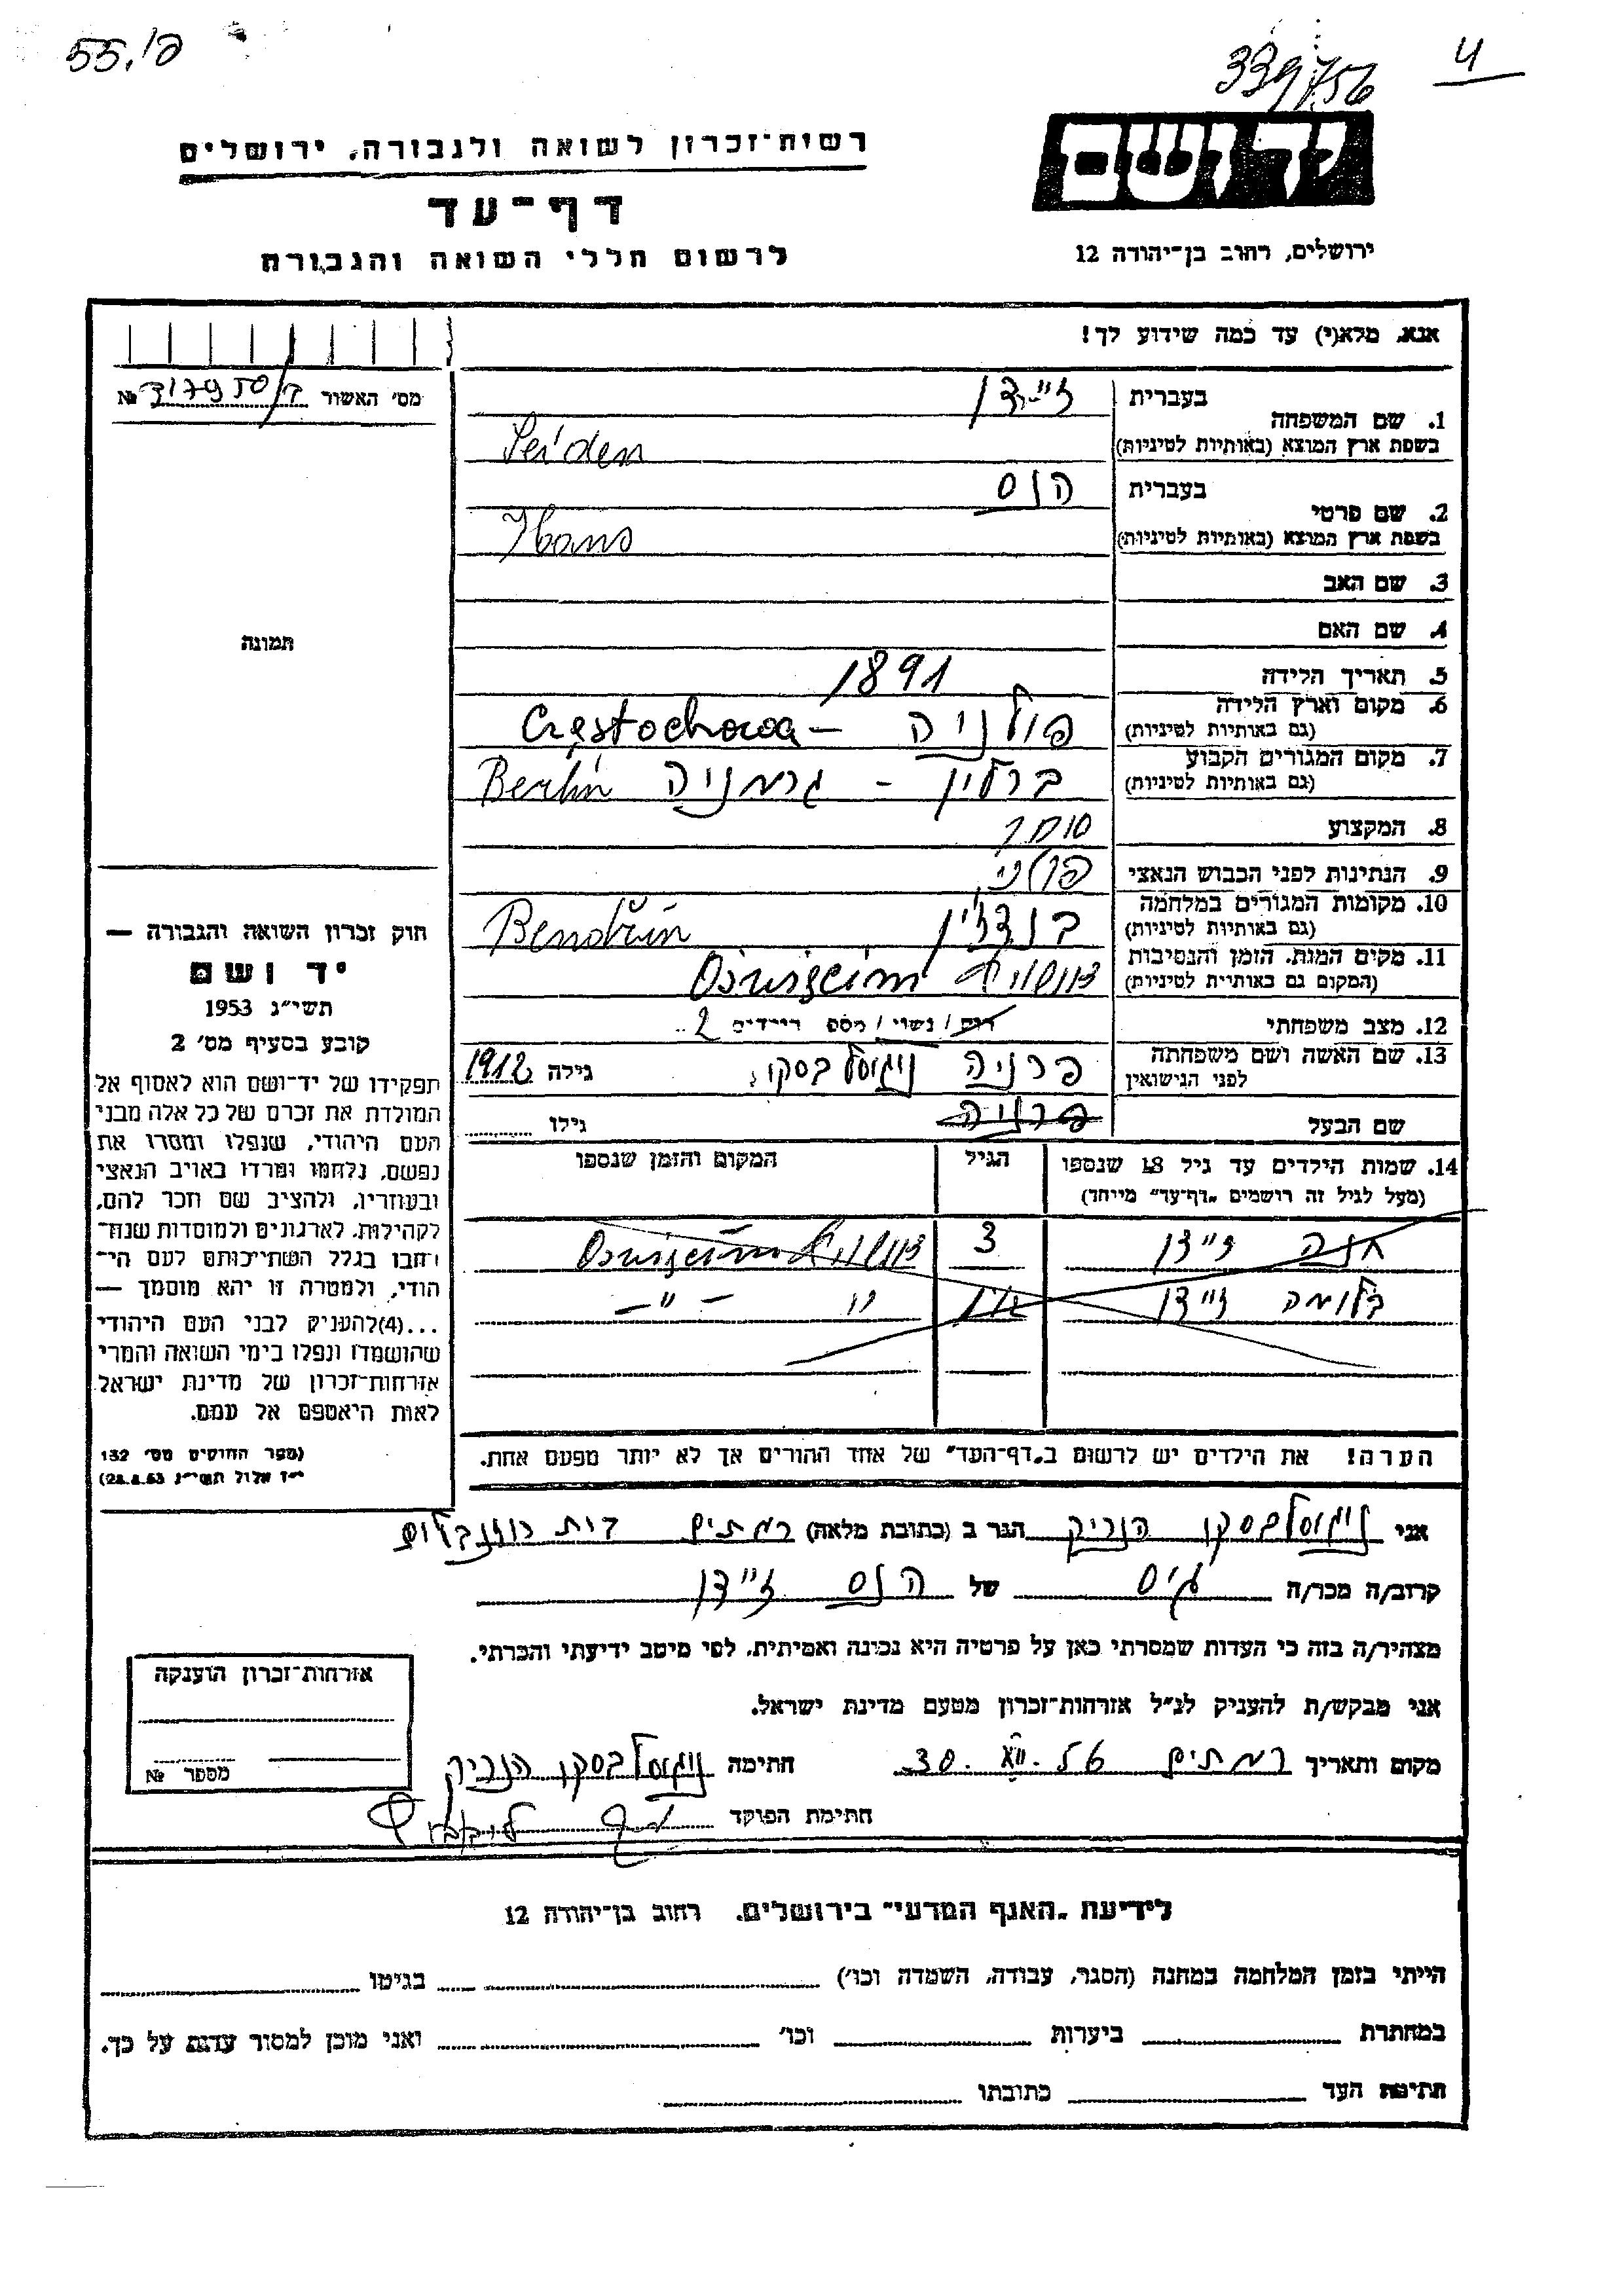 55.
339756
4
יד ושם
רשות־זכרון לשואה ולגבורה, ירושלים
דף־עד
לרשום חללי השואה והגבורה
ירושלים, רחוב בן־יהודה 12
אנא, מלא(י) עד כמה שידוע לך!
מס' האשור №
1. שם המשפחה
בעברית זיידן
בשפת ארץ המוצא (באותיות לטיניות) Seiden
2. שם פרטי
בעברית הנס
בשפת ארץ המוצא (באותיות לטיניות) Hans
3. שם האב
4. שם האם
5. תאריך הלידה 1891
6. מקום וארץ הלידה
(גם באותיות לטיניות) פולניה – Częstochowa
7. מקום המגורים הקבוע
(גם באותיות לטיניות) ברלין - גרמניה Berlin
8. המקצוע סוחר
9. הנתינות לפני הכבוש הנאצי פולני
10. מקומות המגורים במלחמה
(גם באותיות לטיניות) בנדזין Bendžin
11. מקום המות, הזמן והנסיבות
(המקום גם באותיות לטיניות) Oświęcim
12. מצב משפחתי רוק / נשוי / מספר הילדים 2
13. שם האשה ושם משפחתה
לפני הנישואין פרניה גילה 1912
שם הבעל פרניה גילו
14. שמות הילדים עד גיל 18 שנספו
(מעל לגיל זה רושמים „דף־עד" מיוחד)
הגיל
המקום והזמן שנספו
חנה זיידן 3 Oświęcim
בלומה זיידן – " –
הערה! את הילדים יש לרשום ב„דף־העד" של אחד ההורים אך לא יותר מפעם אחת.
תמונה
חוק זכרון השואה והגבורה —
יד ושם
תשי"ג 1953
קובע בסעיף מס' 2
תפקידו של יד־ושם הוא לאסוף אל
המולדת את זכרם של כל אלה מבני
העם היהודי, שנפלו ומסרו את
נפשם, נלחמו ומרדו באויב הנאצי
ובעוזריו, ולהציב שם וזכר להם,
לקהילות, לארגונים ולמוסדות שנח־
רבו בגלל השתייכותם לעם הי־
הודי, ולמטרה זו יהא מוסמך —
...(4) להעניק לבני העם היהודי
שהושמדו ונפלו בימי השואה והמרי
אזרחות־זכרון של מדינת ישראל
לאות היאספם אל עמם.
(ספר החוקים מס' 132
י"ז אלול תשי"ג 28.8.53)
אני הנריק הגר ב (כתובת מלאה) רמתים
קרוב/ה מכר/ה גיס של הנס זיידן
מצהיר/ה בזה כי העדות שמסרתי כאן על פרטיה היא נכונה ואמיתית, לפי מיטב ידיעתי והכרתי.
אני מבקש/ת להעניק לנ"ל אזרחות־זכרון מטעם מדינת ישראל.
מקום ותאריך רמתים חתימה הנריק
חתימת הפוקד
אזרחות־זכרון הוענקה
מספר №
לידיעת „האגף המדעי" בירושלים, רחוב בן־יהודה 12
הייתי בזמן המלחמה במחנה (הסגר, עבודה, השמדה וכו') בגיטו
במחתרת ביערות וכו' ואני מוכן למסור עדות על כך.
חתימת העד כתובתו